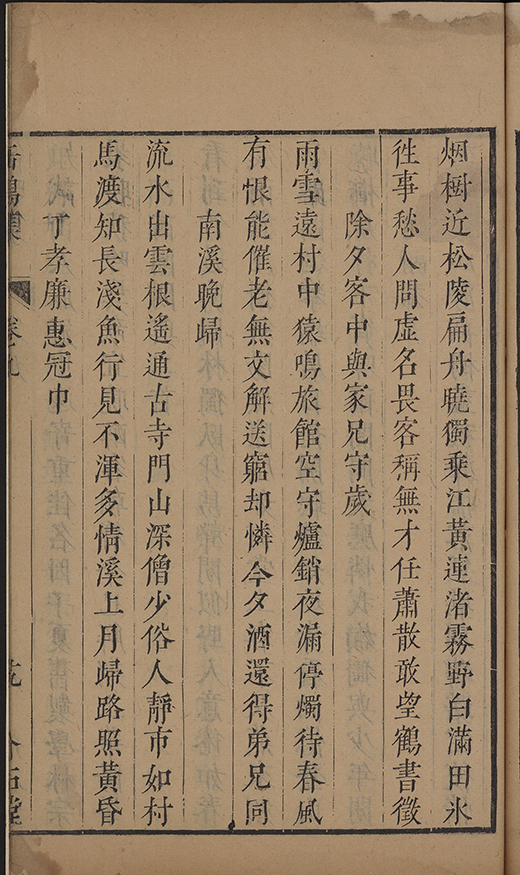 烟樹近松陵扁舟曉獨乘江黃連渚霧野白滿田氷
徃事愁人問虛名畏客稱無才任蕭散敢望鶴書徵
除夕客中與家兄守歲
雨雪遠村中猿鳴旅館空守爐銷夜漏停燭待春風
有恨能催老無文解送窮却憐今夕酒還得弟兄同
南溪晚歸
流水出雲根遙通古寺門山深僧少俗人靜市如村
馬渡知長淺魚行見不渾多情溪上月歸路照黃昏
丁孝廉惠冠巾
卷九